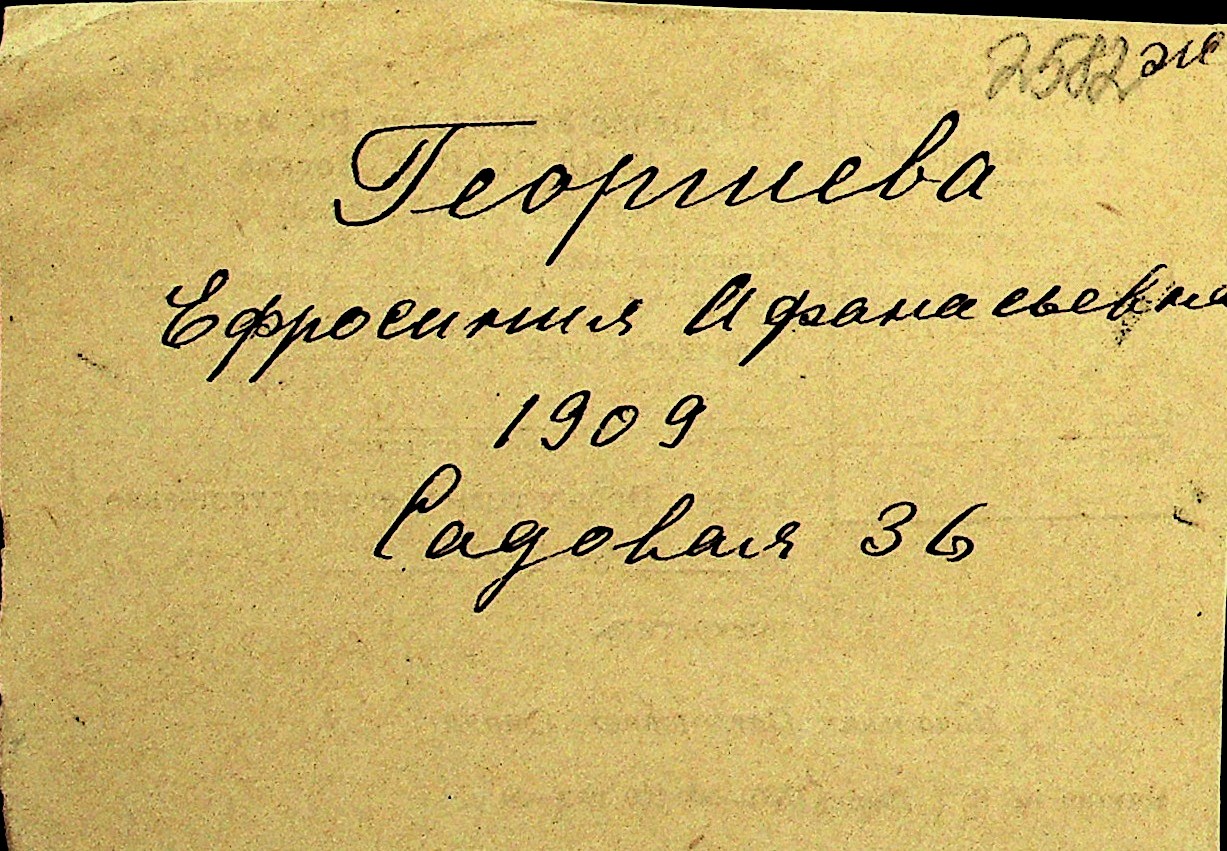 2582 эк
Георгиева
Ефросиния Афанасьевна
1909
Садовая 36